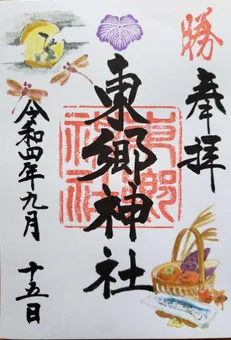 勝
奉拝
東郷神社
令和四年九月
十五日